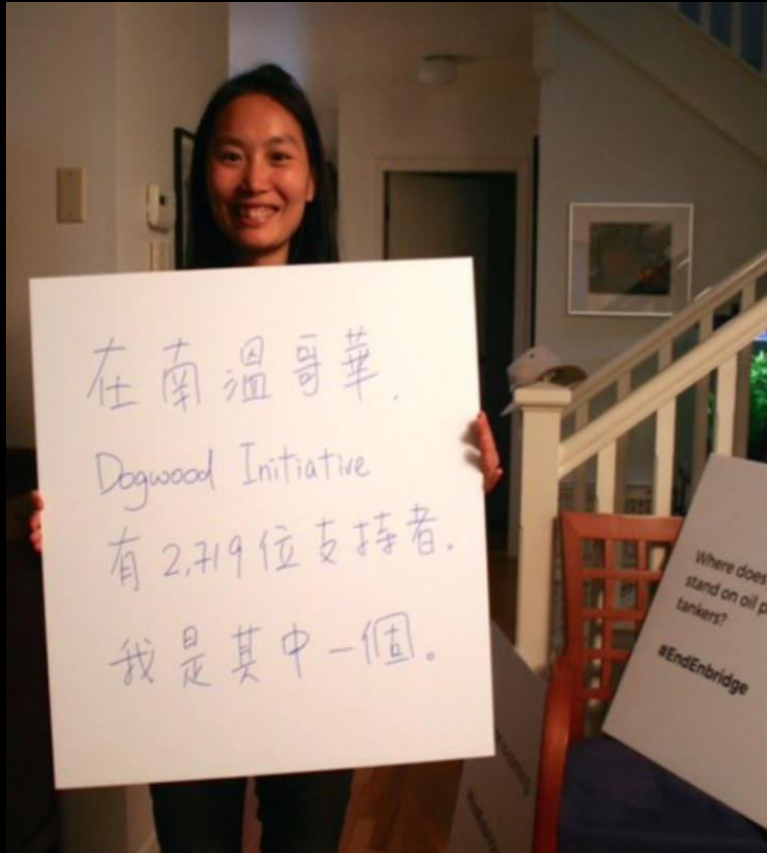 在南溫哥華,
Dogwood Initiative
有2,719位支持者.
我是其中一個。
Where does
stand on oil p
tankers?
#EndEnbridge